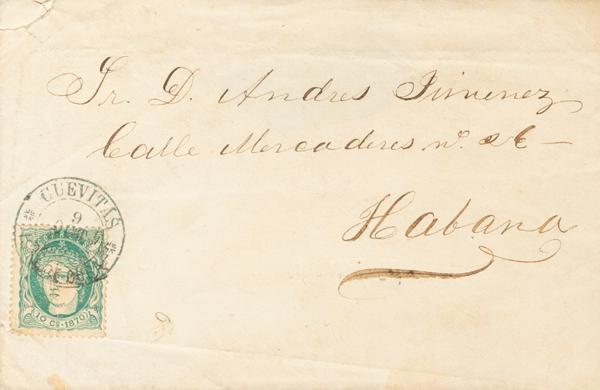 Sr. D. Andres Jimenez
Calle Mercaderes nº.
Habana
CUEVITAS
9
10 Cs. 1870